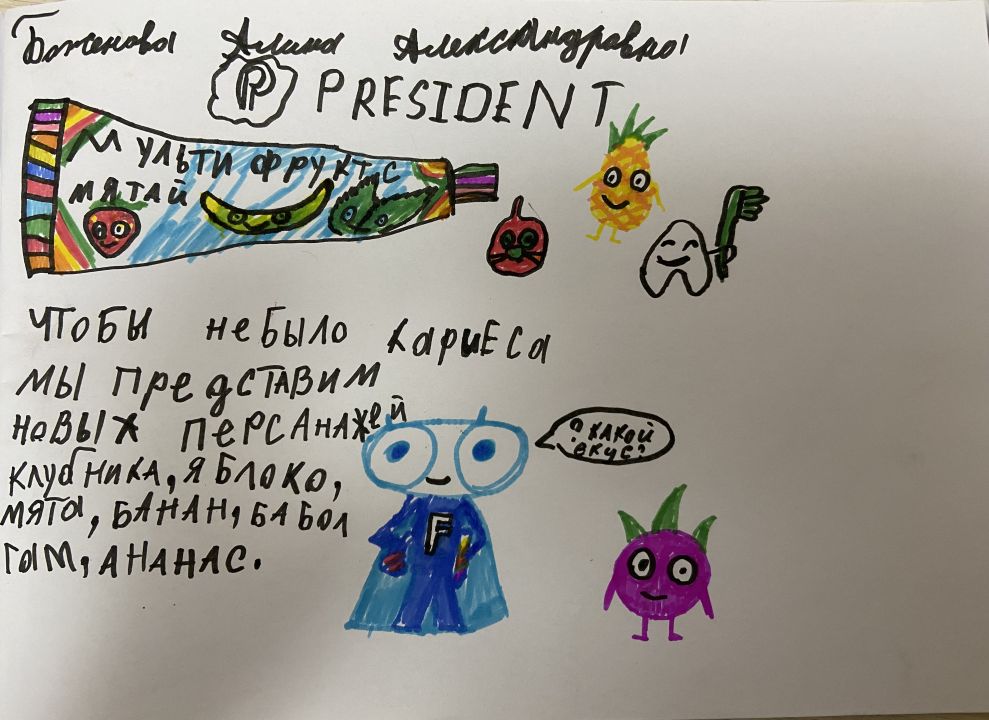 Баженова Алина Александровна
P PRESIDENT
МУЛЬТИ ФРУКТ С
МЯТАЙ
ЧТОБЫ НеБЫЛО КАРИЕСА
МЫ ПРеДСТАВИМ
НОВЫХ ПеРСАНАЖеЙ
КЛУБНИКА, ЯБЛОКО,
МЯТА, БАНАН, БАБОЛ
ГАМ, АНАНАС.
F
А КАКОЙ
ВКУС?